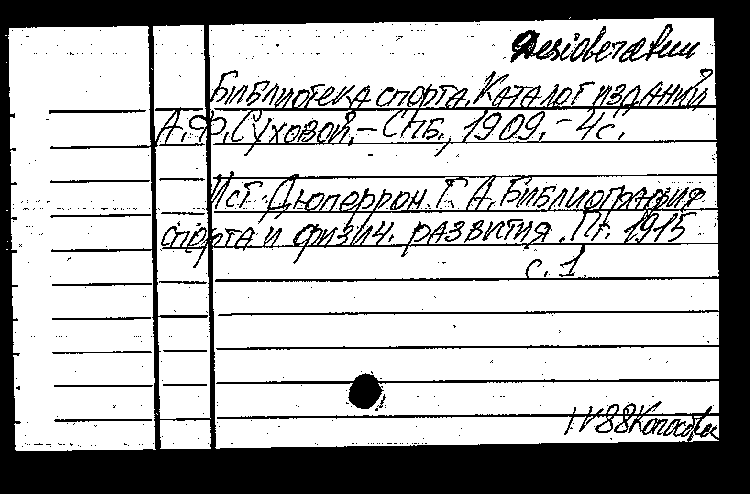 Desideratum
Библиотека спорта. Каталог изданий
А.Ф. Суховой. – СПБ., 1909. – 4с.
Ист. Дюперрон. Г. А. Библиография
спорта и физич. развития. Пг. 1915
с. 1
1.V 88